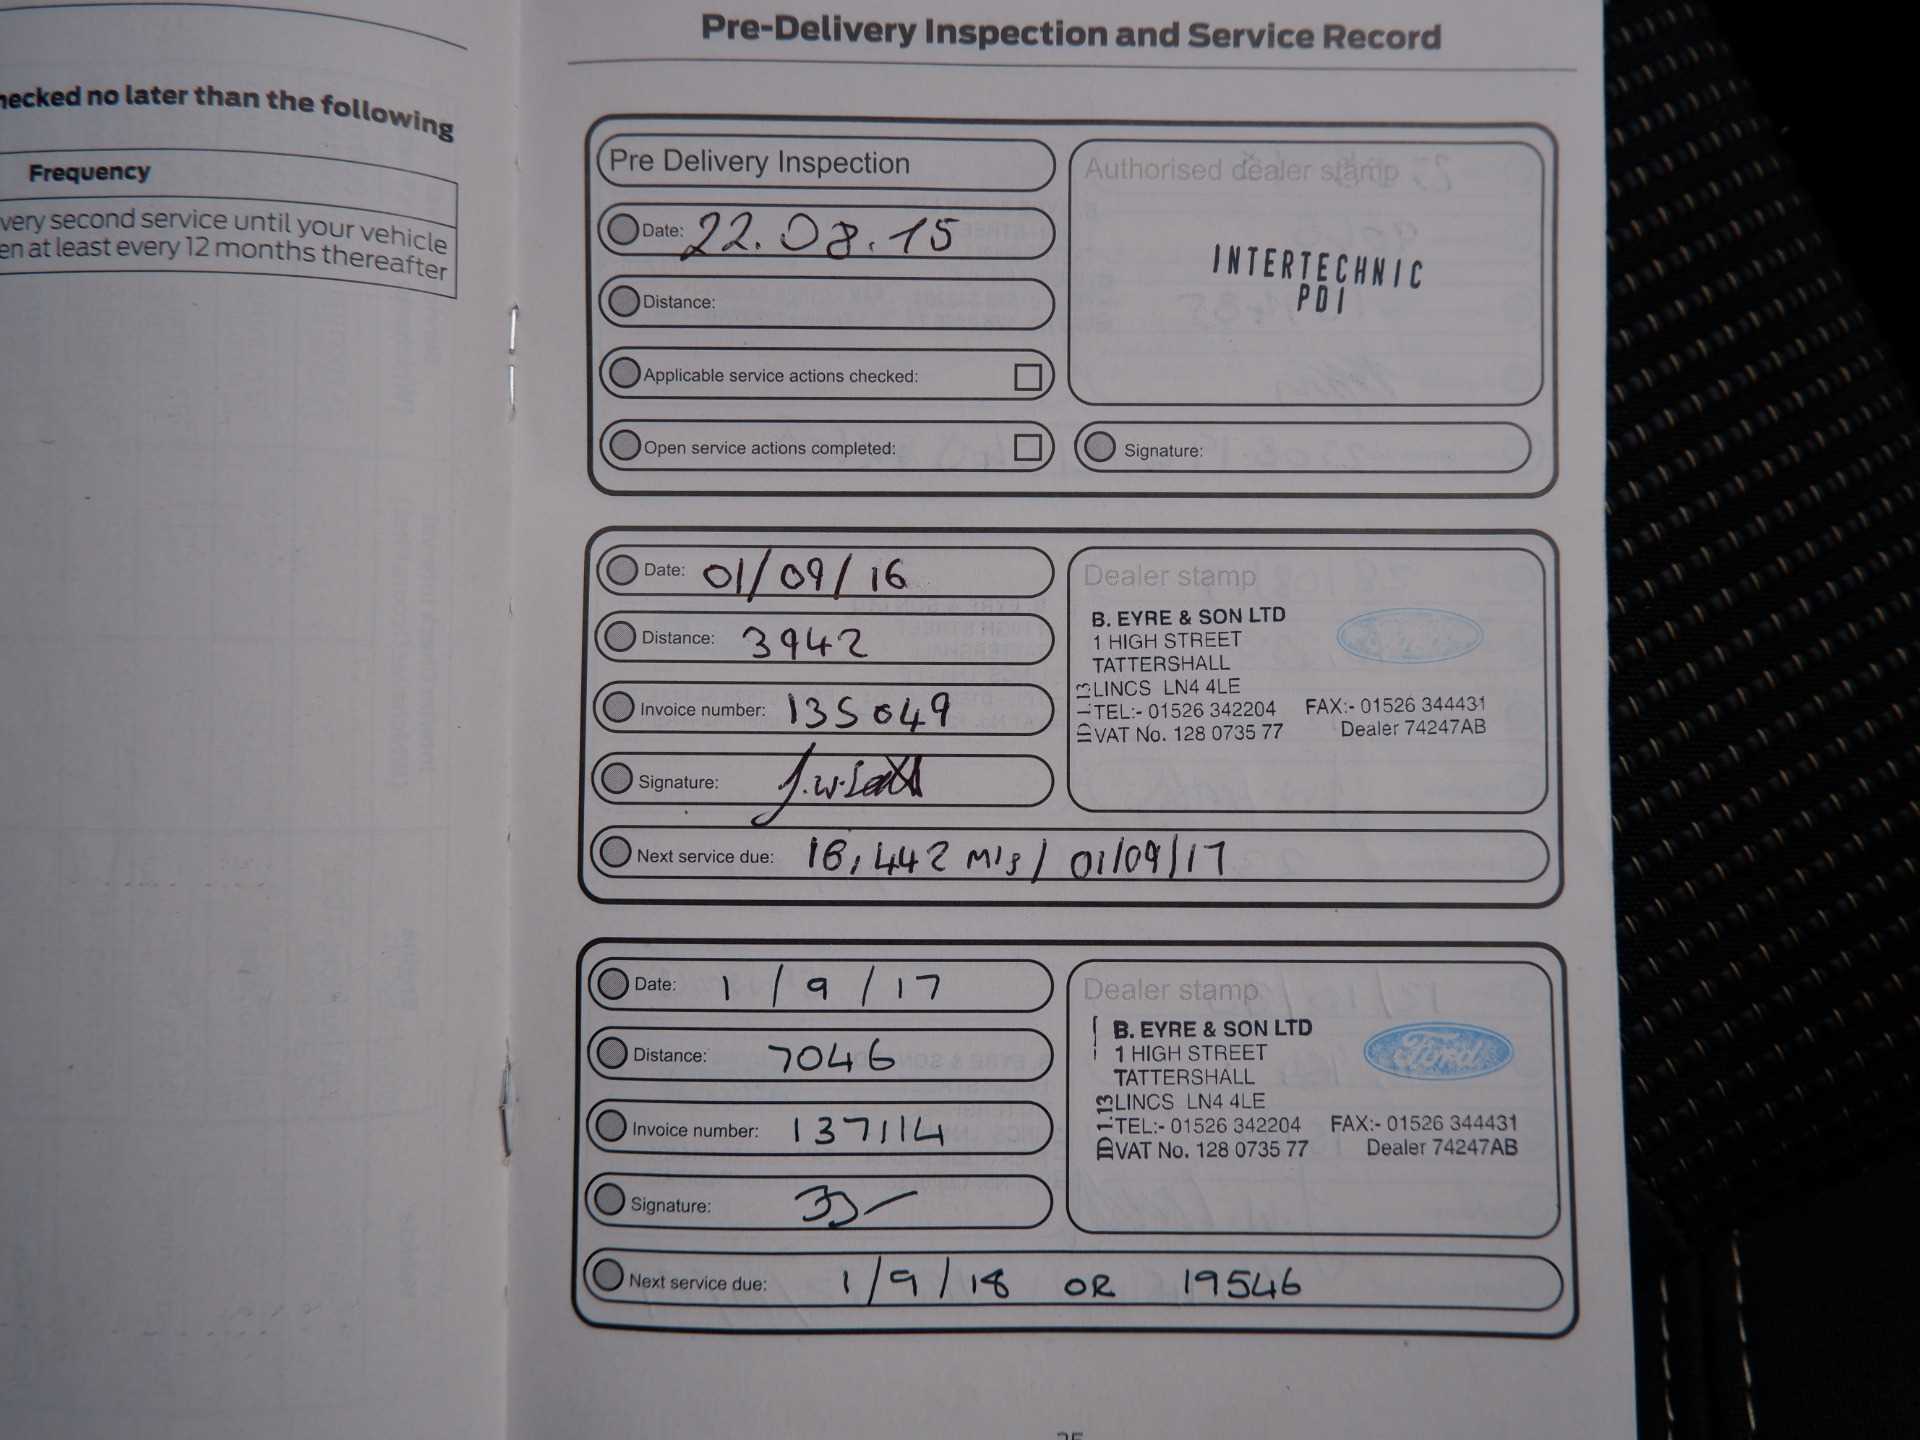 hecked no later than the following
Frequency
very second service until your vehicle
en at least every 12 months thereafter
Pre-Delivery Inspection and Service Record
Pre Delivery Inspection
Date: 22.08.15
Distance:
Applicable service actions checked:
Open service actions completed:
Authorised dealer stamp
INTERTECHNIC
PDI
Signature:
Date: 01/09/16
Distance: 3942
Invoice number: 135049
Signature:
Next service due: 16,442 mls / 01/09/17
Dealer stamp
B. EYRE & SON LTD
1 HIGH STREET
TATTERSHALL
LINCS LN4 4LE
TEL:- 01526 342204 FAX:- 01526 344431
VAT No. 128 0735 77 Dealer 74247AB
Ford
Date: 1/9/17
Distance: 7046
Invoice number: 137114
Signature:
Next service due: 1/9/18 OR 19546
Dealer stamp
B. EYRE & SON LTD
1 HIGH STREET
TATTERSHALL
LINCS LN4 4LE
TEL:- 01526 342204 FAX:- 01526 344431
VAT No. 128 0735 77 Dealer 74247AB
Ford